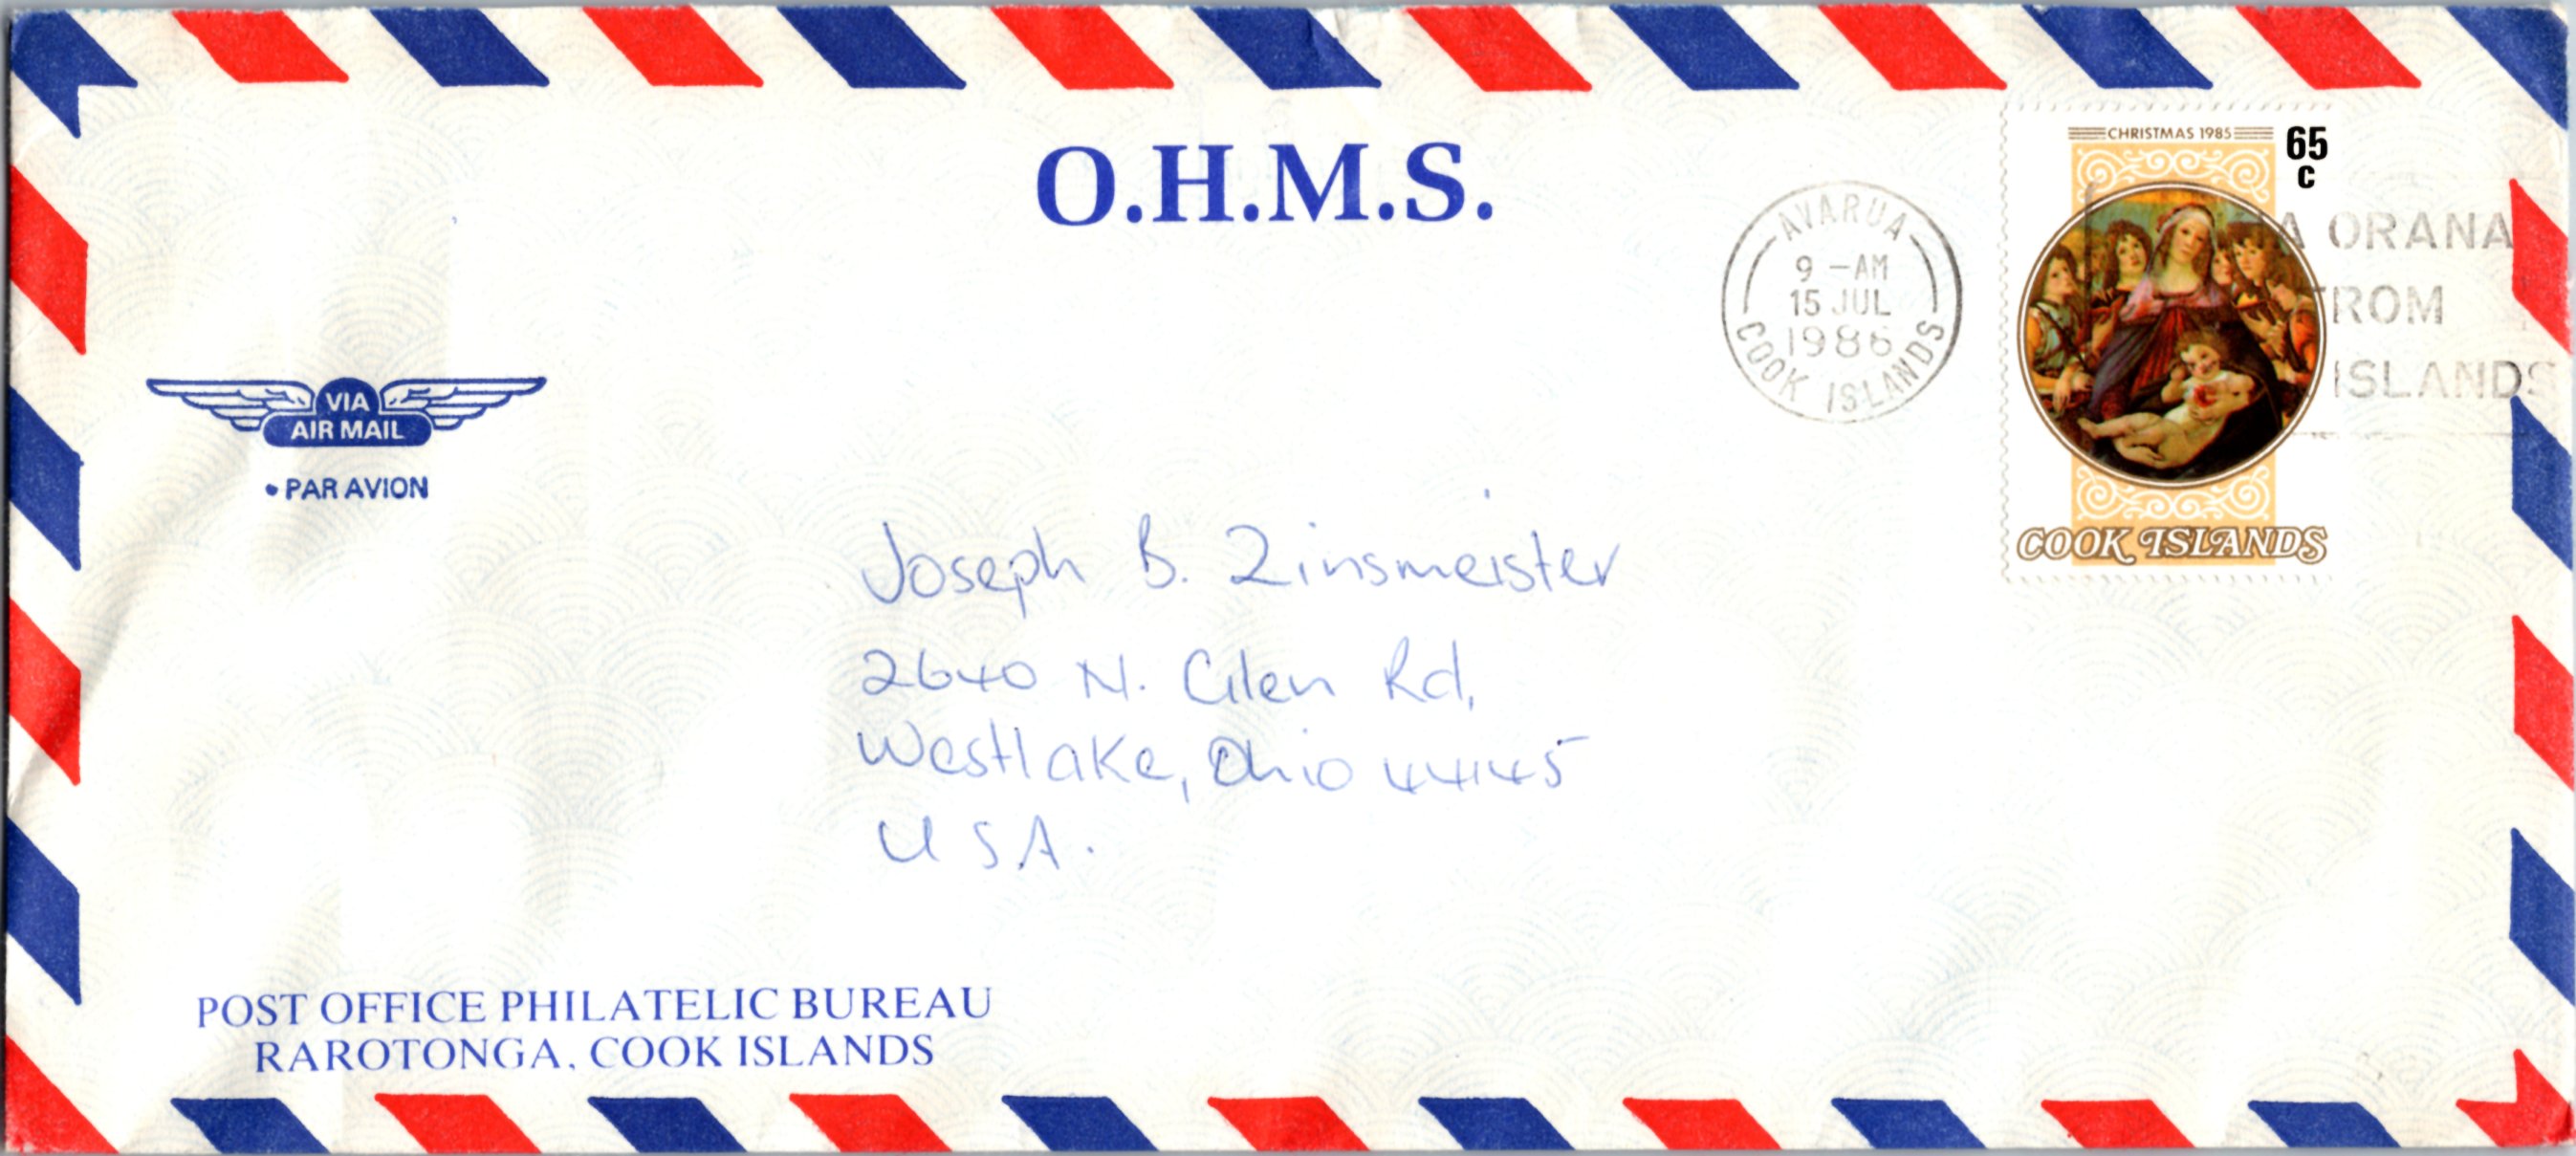 O.H.M.S.
CHRISTMAS 1985
65
c
COOK ISLANDS
AVARUA
9 -AM
15 JUL
1986
COOK ISLANDS
A ORANA
FROM
ISLANDS
VIA
AIR MAIL
• PAR AVION
Joseph B. Zinsmeister
2640 N. Glen Rd,
Westlake, Ohio 44145
U S A.
POST OFFICE PHILATELIC BUREAU
RAROTONGA, COOK ISLANDS